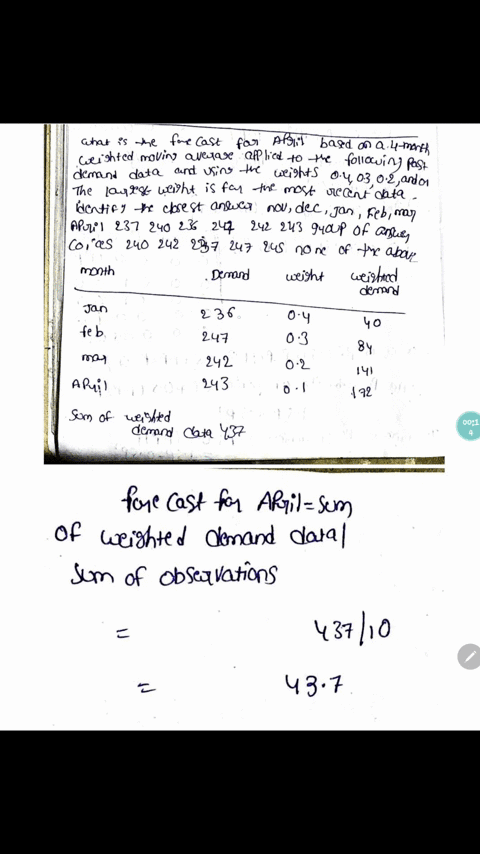 what is the forecast for April based on a 4-month
weighted moving average applied to the following past
demand data and using the weights 0.4, 0.3, 0.2, and 0.1
The largest weight is for the most recent data.
Identify the closest answer nov, dec, Jan, Feb, mar
April 237 240 236 247 242 243 group of answer
240 242 237 247 245 none of the above
month Demand weight weighted demand
Jan 236 0.4 40
feb 247 0.3 84
mar 242 0.2 141
April 243 0.1 172
Sum of weighted
demand data 437
00:1
4
fore cast for April = Sum
of weighted demand data/
Sum of observations
= 437/10
= 43.7